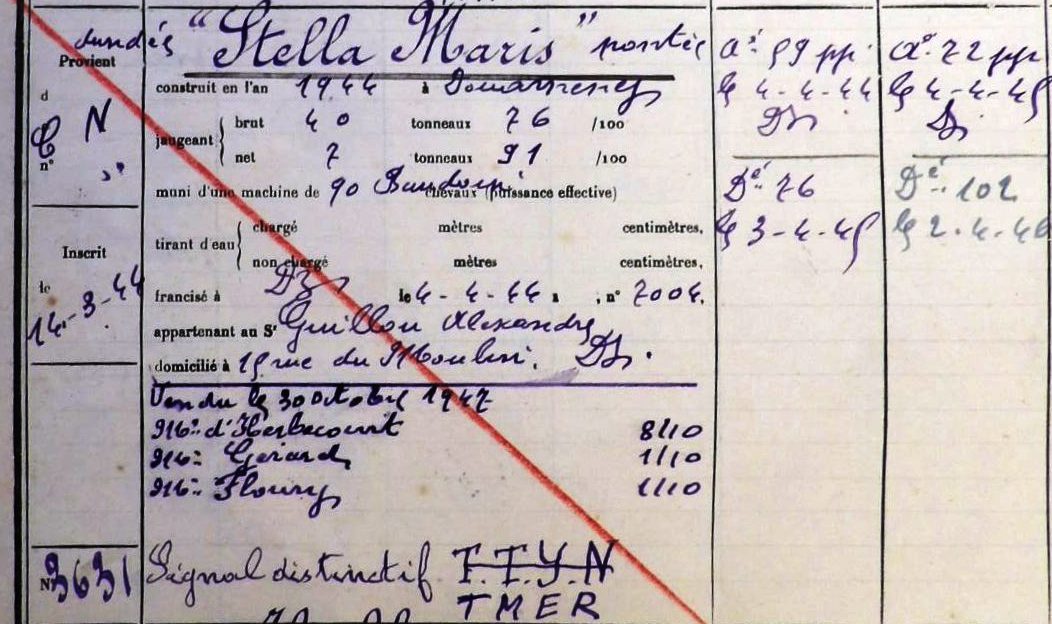 dundée "Stella Maris" pontée
Provient
d
C N
n° "
Inscrit
le
14-3-44
N° 3631
construit en l'an 1944 à Douarnenez
jaugeant { brut 40 tonneaux 76 /100
net 7 tonneaux 91 /100
muni d'une machine de 90 Baudouin chevaux (puissance effective)
tirant d'eau { chargé mètres centimètres,
non chargé mètres centimètres,
francisé à DZ le 4-4-44 , n° 7004,
appartenant au Sr Guillou Alexandre
domicilié à 15 rue du Moulin. DZ.
Vendu le 30 octobre 1947
Mr d'Herbecourt 8/10
Mr Gérard 1/10
Mr Floury 1/10
Signal distinctif T.T.Y.N
TMER
59
le 4-4-44
DZ
76
le 3-4-45
72
le 4-4-45
DZ
102
le 2-4-46